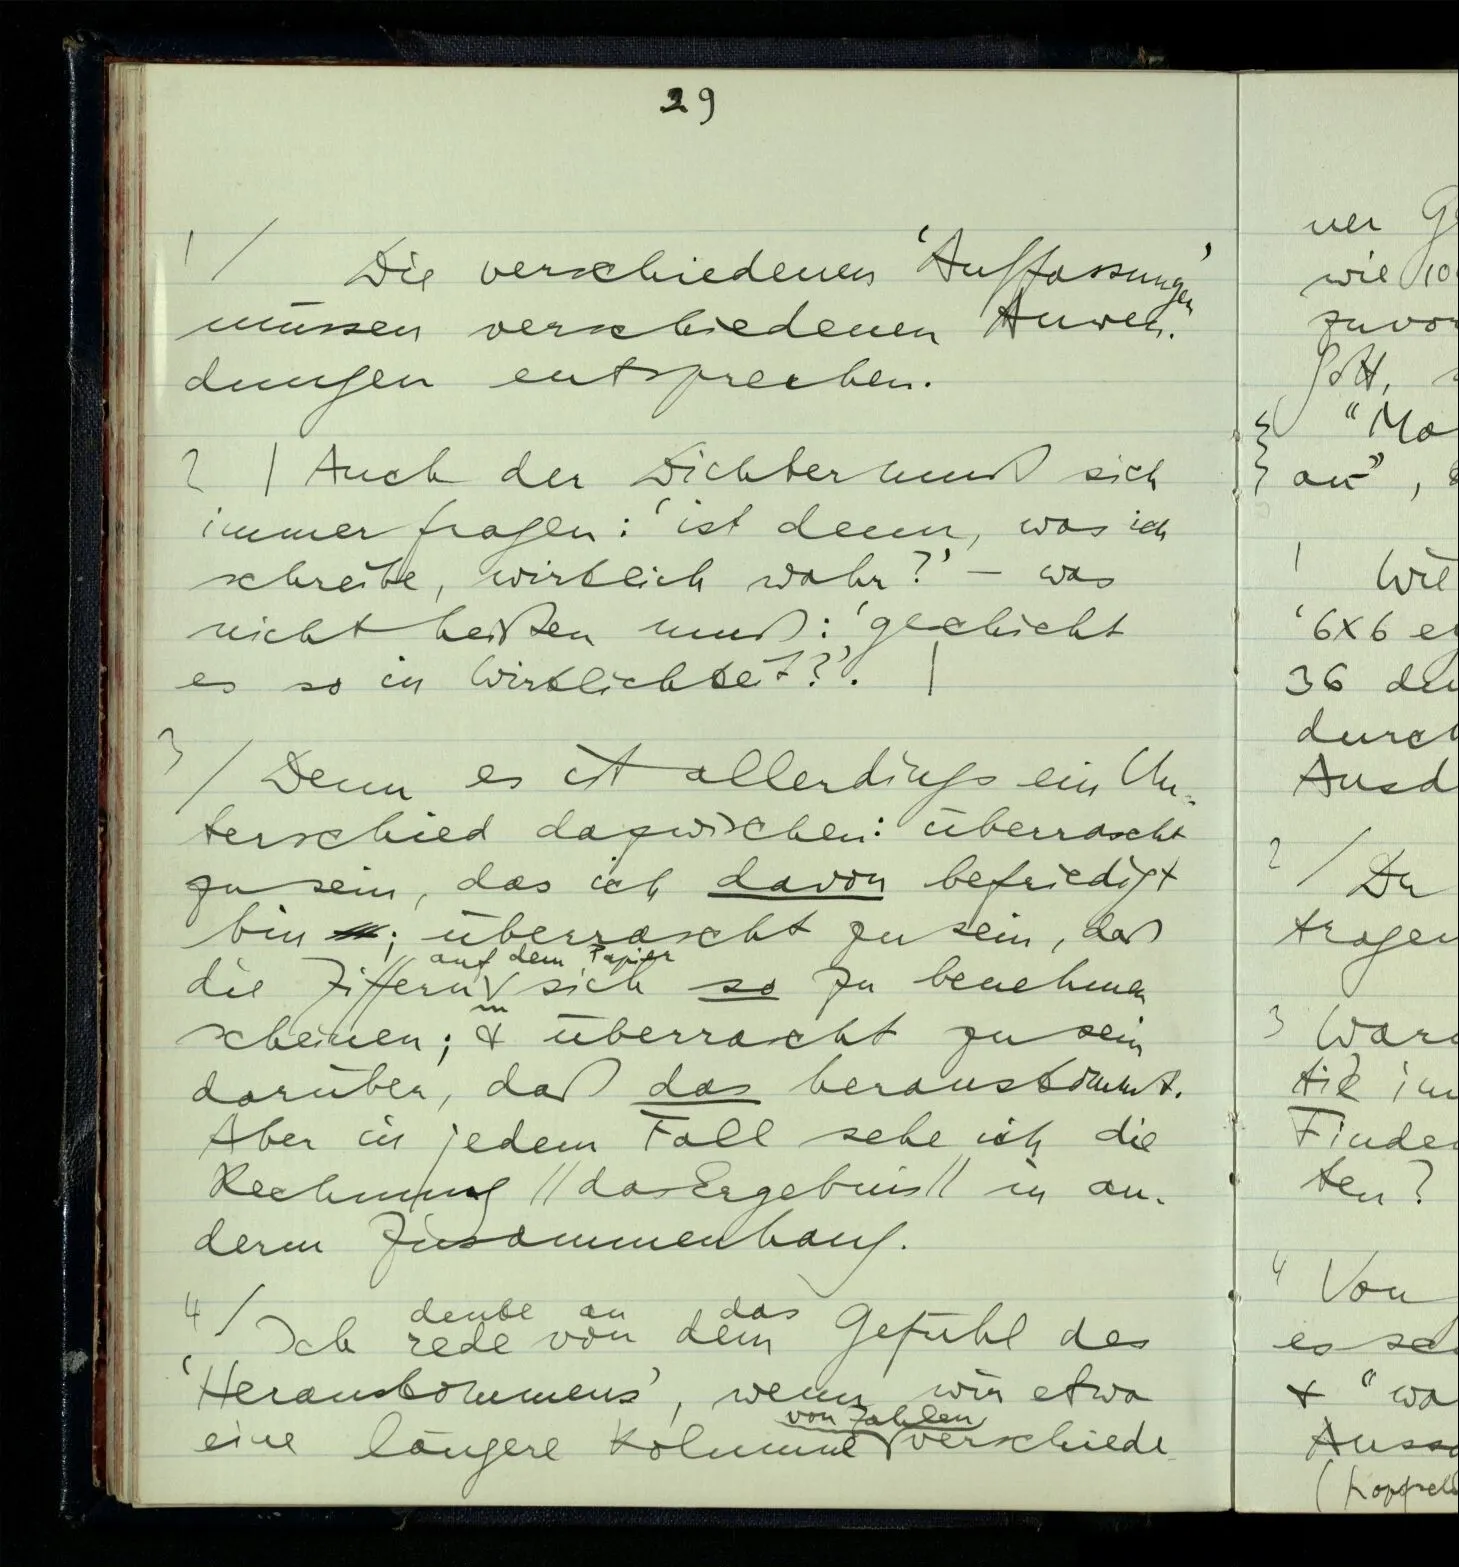 29
1 / Die verschiedenen 'Auffassungen'
müssen verschiedenen Anwen-
dungen entsprechen.
2 | Auch der Dichter muß sich
immer fragen: 'ist denn, was ich
schreibe, wirklich wahr?' – was
nicht heißen muß: 'geschieht
es so in Wirklichkeit?'. |
3 / Denn es ist allerdings ein Un-
terschied dazwischen: überrascht
zu sein, das ich davon befriedigt
bin ; überrascht zu sein, daß
auf dem Papier
die Ziffern sich so zu benehmen
scheinen; & überrascht zu sein
darüber, daß das herauskommt.
Aber in jedem Fall sehe ich die
Rechnung // das Ergebnis // in an-
derm Zusammenhang.
denke an das
4 / Ich rede von dem Gefühl des
'Herauskommens', wenn wir etwa
von Zahlen
eine längere Kolumne verschiede
ner
wie
zuvor
Gott,
"Mo
an", 
1 Wie
'6x6
36
durch
Ausd
2 / Du
tragen
3 War
tik im
Finden
ten?
4 Von
es
& "wa
Aus